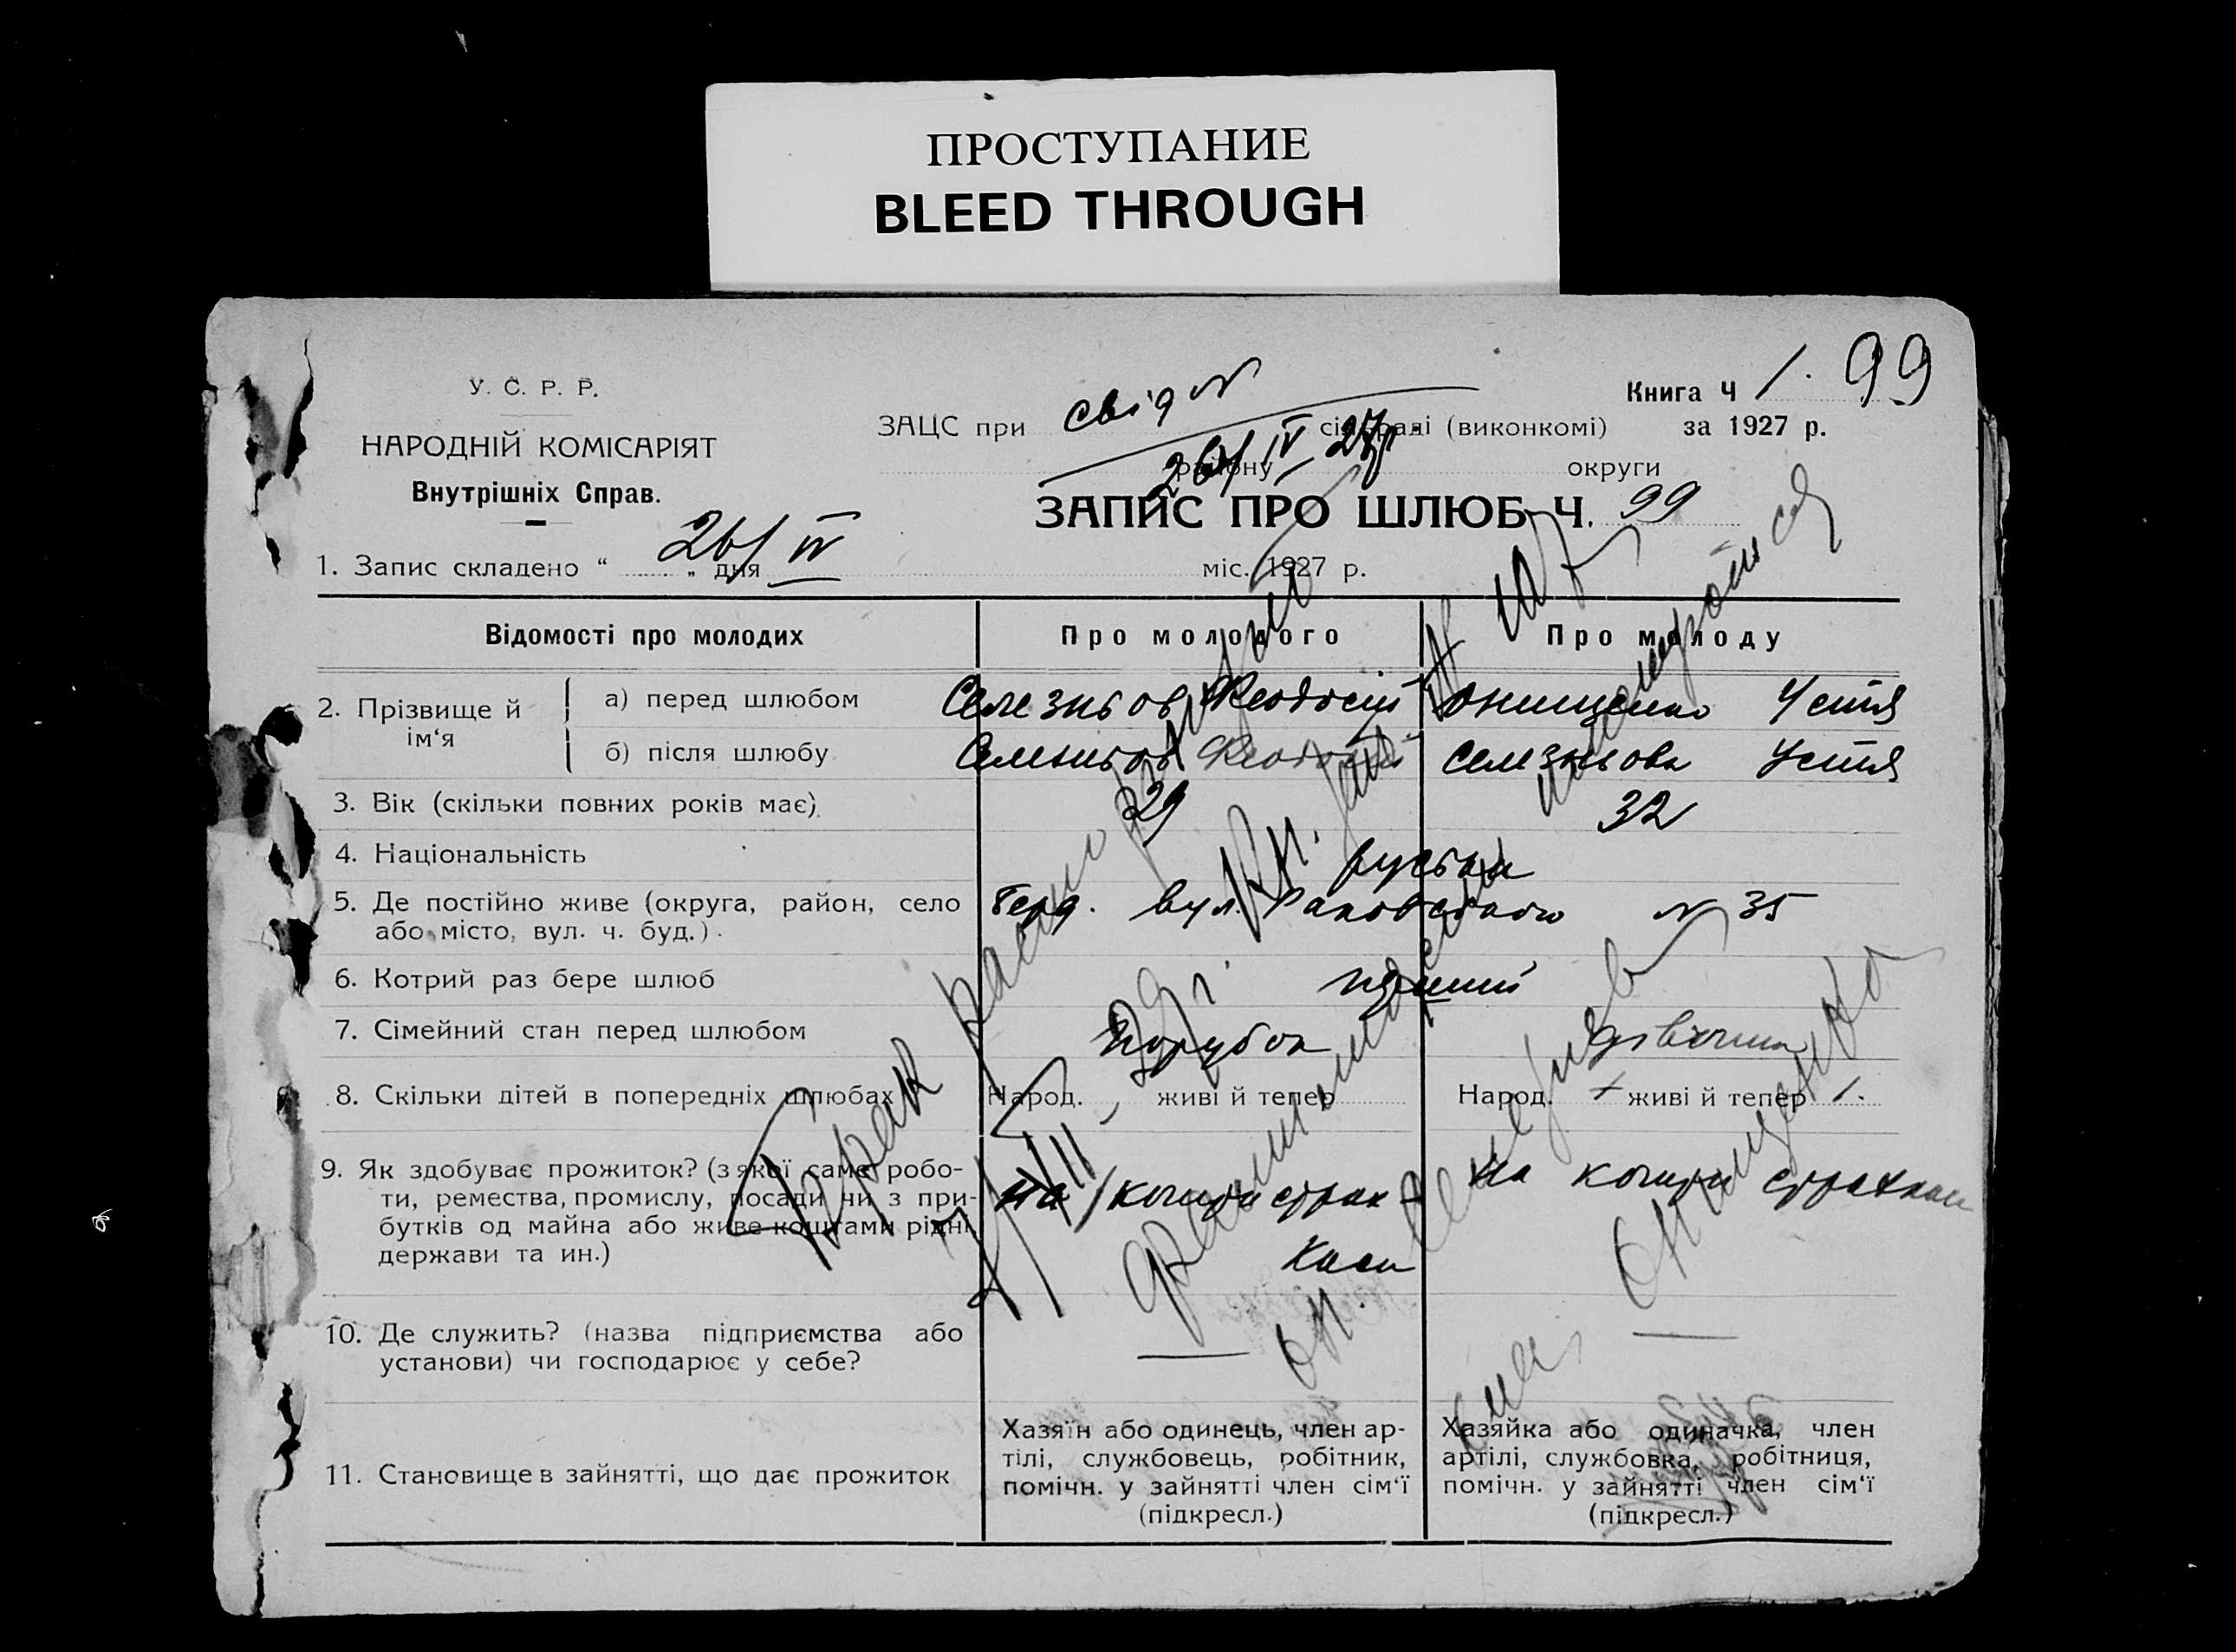 ПРОСТУПАНИЕ
BLEED THROUGH
У. С. Р. Р.
НАРОДНІЙ КОМІСАРІЯТ
Внутрішніх Справ.
Книга Ч 1. 99
ЗАЦС при сільраді (виконкомі) за 1927 р.
свід N
26/IV 27р.
району округи
ЗАПИС ПРО ШЛЮБ Ч. 99
1. Запис складено “ 26/ „ дня IV міс. 1927 р.
Відомості про молодих Про молодого Про молоду
2. Прізвище й ім‘я
а) перед шлюбом Селезньов Феодосій Онищенко Устя
б) після шлюбу Селезньов Феодосій Селезньова Устя
3. Вік (скільки повних років має) 29 32
4. Національність руська
5. Де постійно живе (округа, район, село Берд. вул. Раковського N 35
або місто, вул. ч. буд.).
6. Котрий раз бере шлюб перший
7. Сімейний стан перед шлюбом Парубок дівчина
8. Скільки дітей в попередніх шлюбах Народ. живі й тепер Народ. живі й тепер 1.
9. Як здобуває прожиток? (з якої саме робо-
ти, ремества, промислу, посади чи з при-
бутків од майна або живе коштами рідні,
держави та ин.)
На кошти страх-
каси
На кошти страхкаси
10. Де служить? (назва підприємства або
установи) чи господарює у себе?
11. Становище в зайнятті, що дає прожиток
Хазяїн або одинець, член ар-
тілі, службовець, робітник,
помічн. у зайнятті член сім‘ї
(підкресл.)
Хазяйка або одиначка, член
артілі, службовка, робітниця,
помічн. у зайнятті член сім‘ї
(підкресл.)
Брак
Онищенко